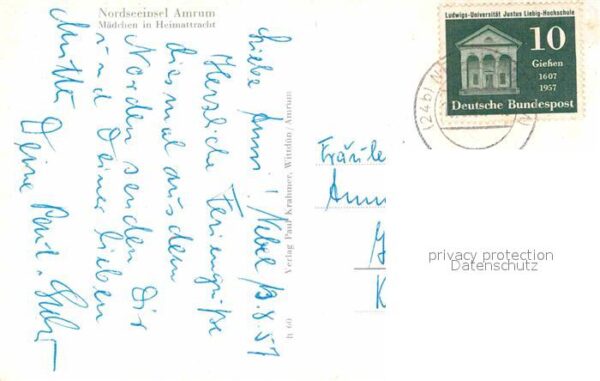 Nordseeinsel Amrum
Mädchen in Heimattracht
Liebe Anni! Nebel 13.8.57
Herzliche Feriengrüße
diesmal aus dem
Norden senden Dir
und Deiner lieben
Mutter Deine
Verlag Paul Krahmer, Wittdün/Amrum
h 60
Ludwigs-Universität Justus Liebig-Hochschule
10
Gießen
1607
1957
Deutsche Bundespost
(24b)
Fräule
Ann
K
privacy protection
Datenschutz